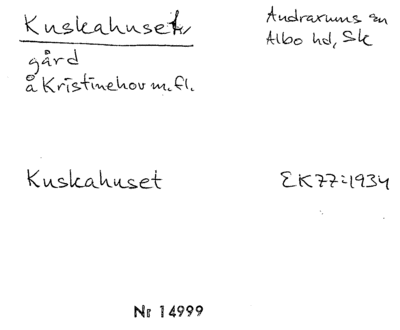 Kuskahuset, Andrarums sn
Albo hd, Sk
gård
å Kristinehov m.fl.
Kuskahuset EK77:1934
Nr 14999